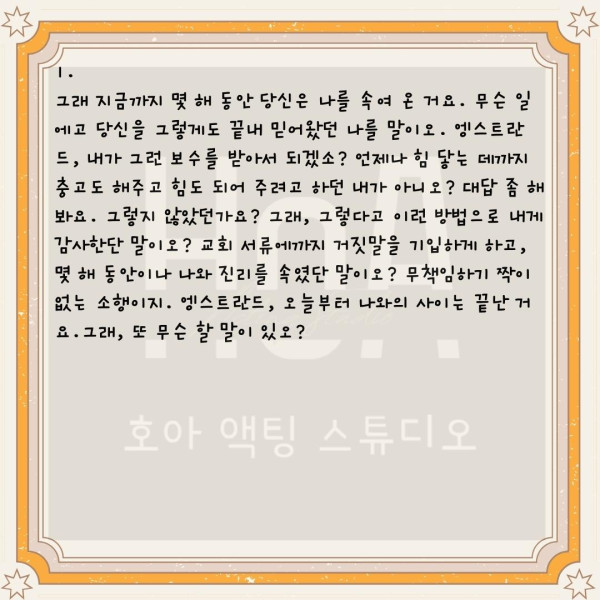 1.
그래 지금까지 몇 해 동안 당신은 나를 속여 온 거요. 무슨 일
에고 당신을 그렇게도 끝내 믿어왔던 나를 말이오. 엥스트란
드, 내가 그런 보수를 받아서 되겠소? 언제나 힘 닿는 데까지
충고도 해주고 힘도 되어 주려고 하던 내가 아니오? 대답 좀 해
봐요. 그렇지 않았던가요? 그래, 그렇다고 이런 방법으로 내게
감사한단 말이오? 교회 서류에까지 거짓말을 기입하게 하고,
몇 해 동안이나 나와 진리를 속였단 말이오? 무책임하기 짝이
없는 소행이지. 엥스트란드, 오늘부터 나와의 사이는 끝난 거
요.그래, 또 무슨 할 말이 있오?
HoA
호아 액팅 스튜디오